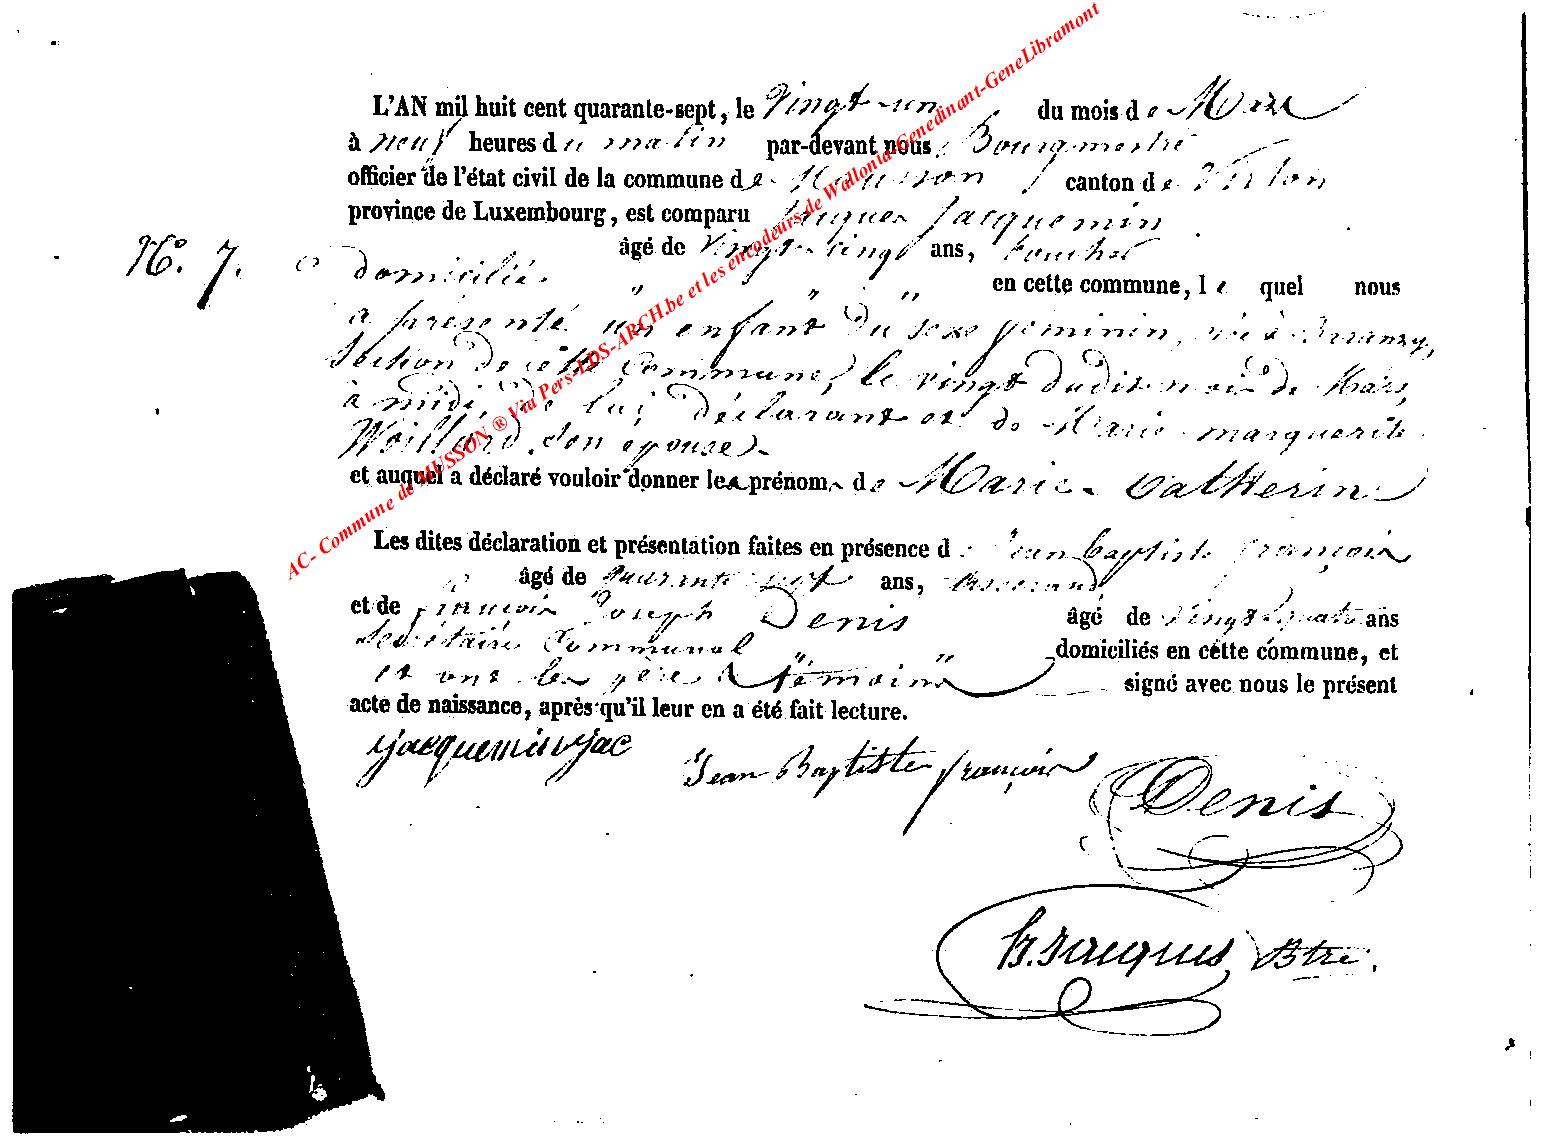 L'AN mil huit cent quarante-sept, le Vingt-un du mois de Mars
à neuf heures du matin par-devant nous Bourgmestre
officier de l'état civil de la commune de Musson, canton de Virton
province de Luxembourg, est comparu Jacques Jacquemin
âgé de Vingt-cinq ans,
N.° 7. domicilié " " " en cette commune, le quel nous
a présenté un enfant du sexe féminin, née à Baranzy,
Section de cette Commune, le vingt dudit mois de Mars,
à midi, de lui déclarant et de Marie-marguerite
Woillard, son épouse
et auquel a déclaré vouloir donner les prénoms de Marie-Catherine
Les dites déclaration et présentation faites en présence de Jean Baptiste François
âgé de quarante sept ans, tisserand
et de François Joseph Denis âgé de vingt quatre ans
Secrétaire Communal " " domiciliés en cette commune, et
et ont les père & témoins signé avec nous le présent
acte de naissance, après qu'il leur en a été fait lecture.
jacquemin jac
Jean Baptiste françois
Denis
Jacques Btre.
AC- Commune de MUSSON ® Via Pers-LDS-ARCH.be et les encodeurs de Wallonia-Genedinant-GeneLibramont